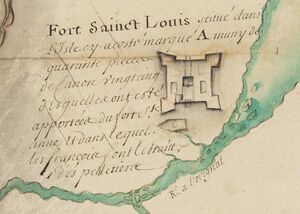 Fort Sainct Louis scitué dans
l'Isle cy acosté marqué A muny de
quarante pieces
de canon vingtcinq
desquelles ont esté
apportées du forte
anne et dans lequel
les françois font le trait,
des pelletiere
Rr. a l'orignal